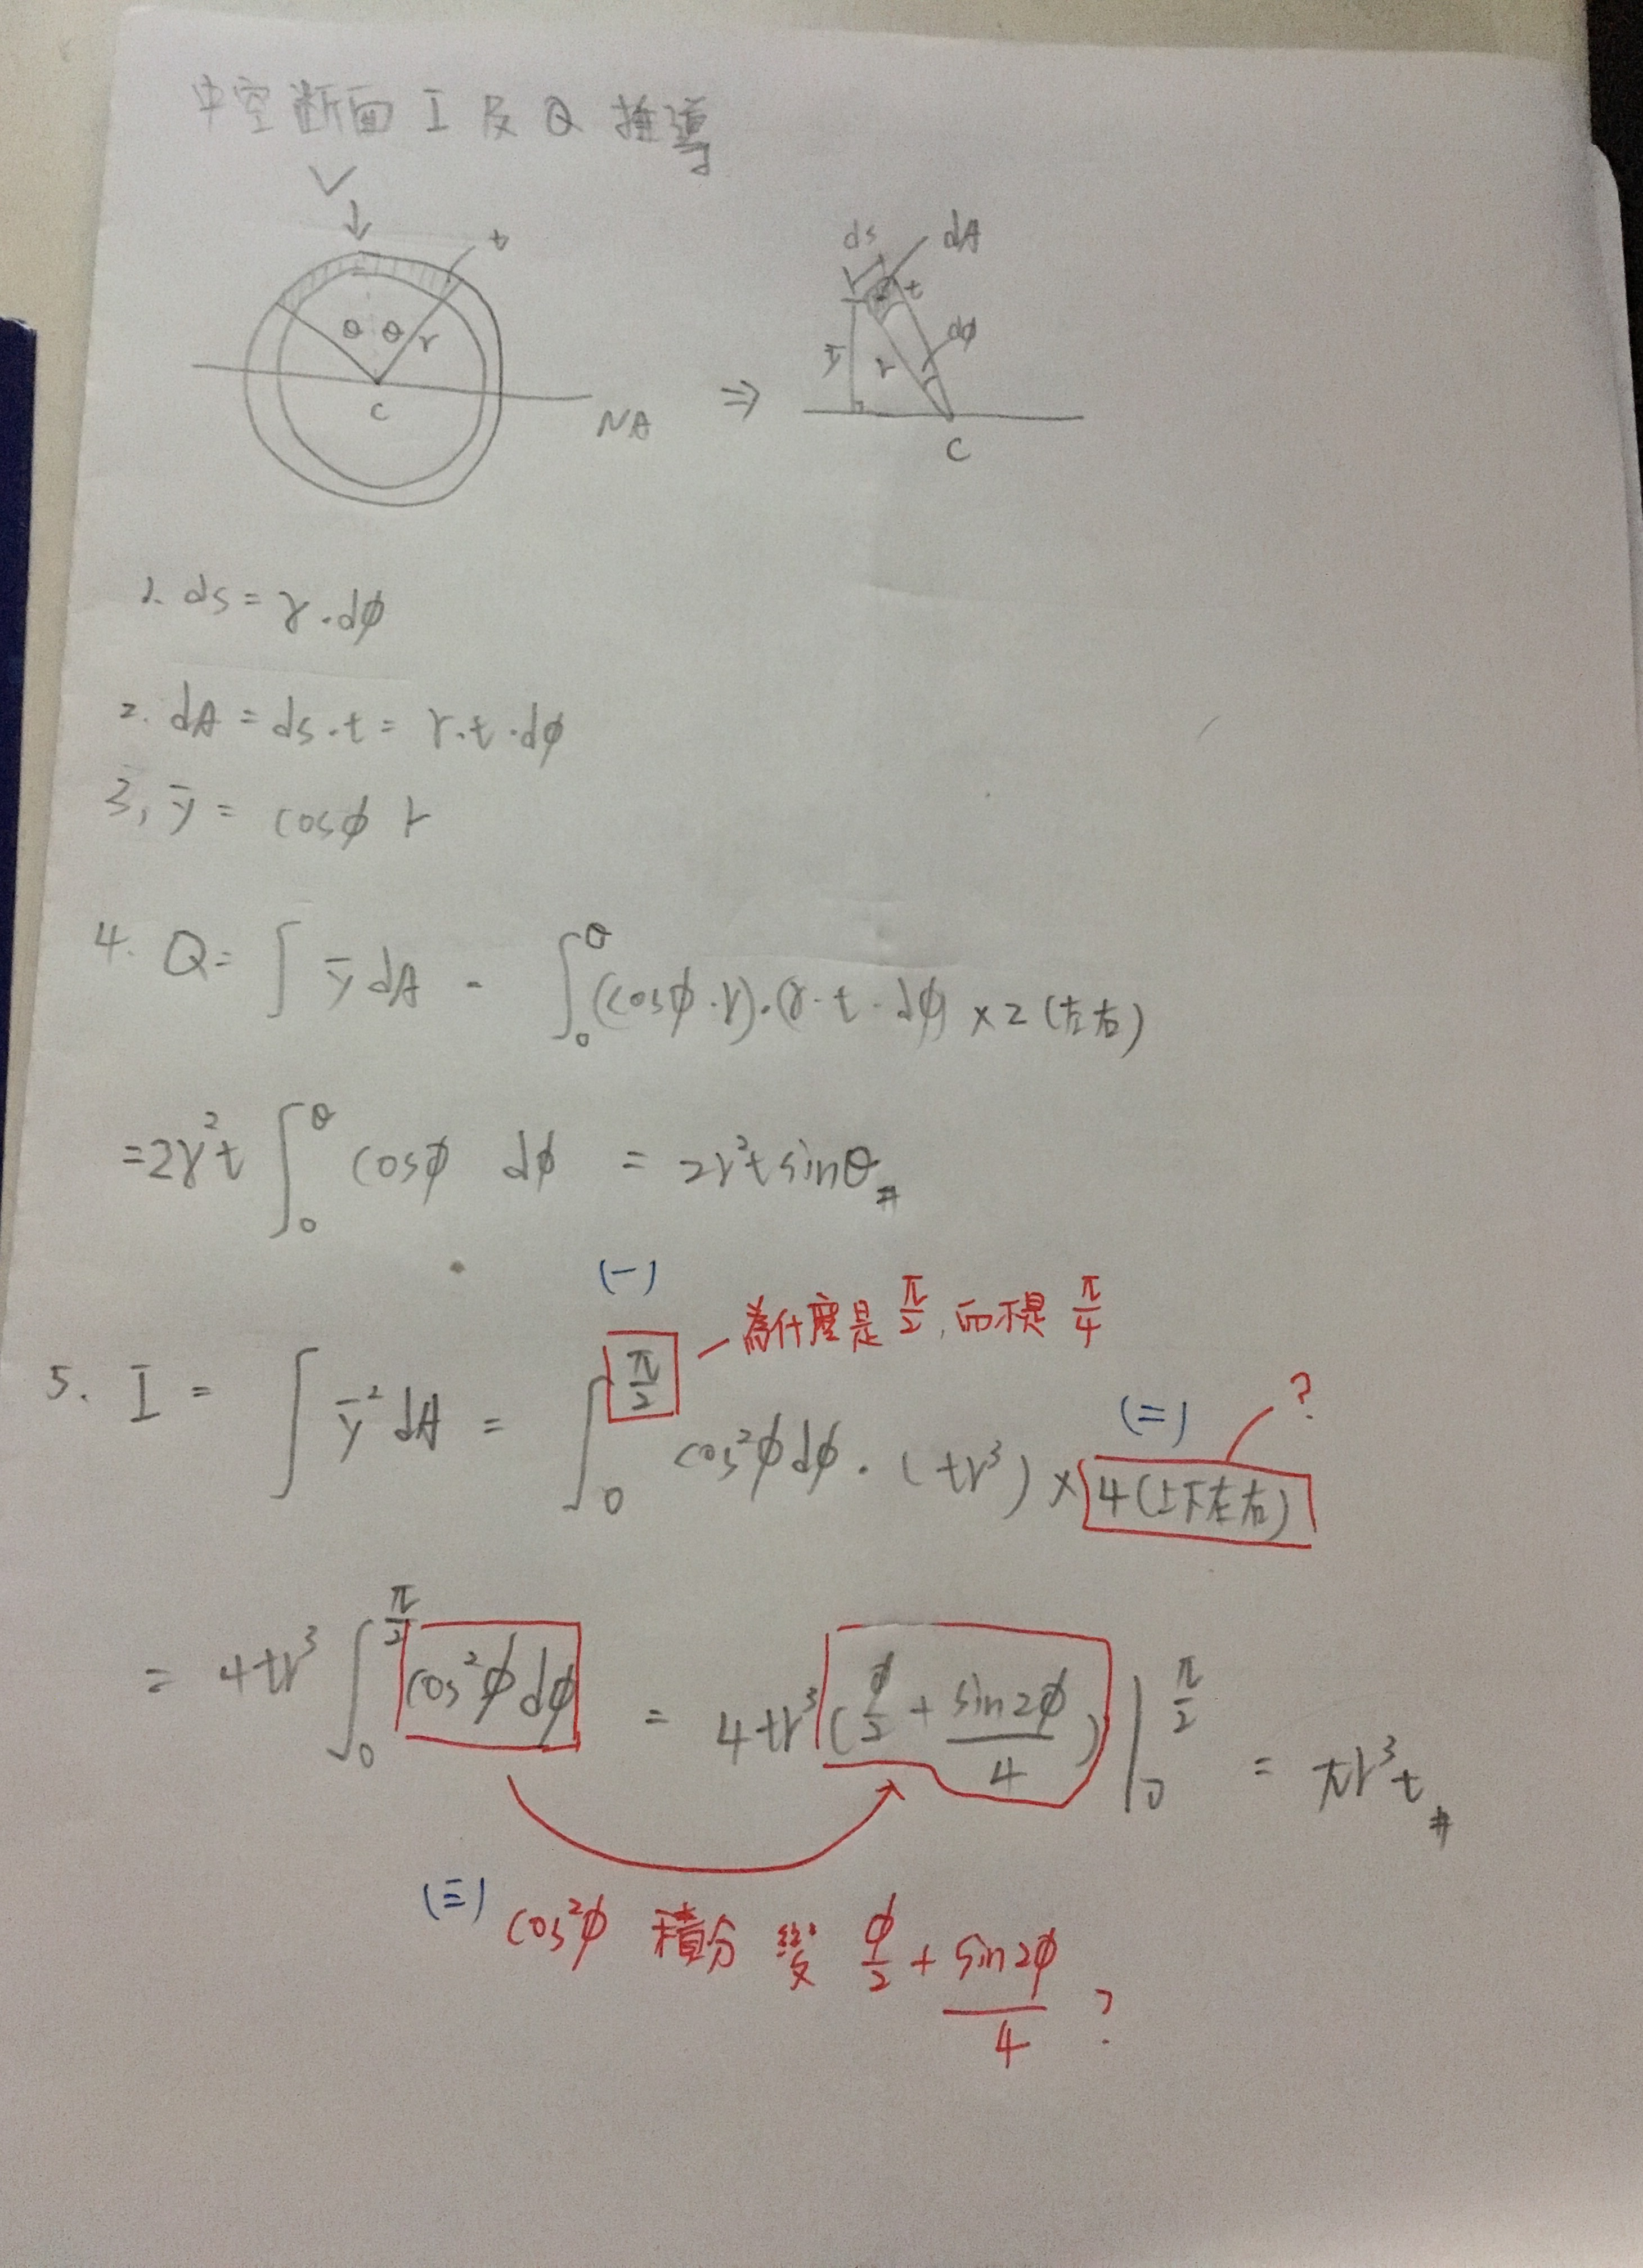 中空断面 I 及 Q 推導
V
t
θ θ r
C
NA
⇒
ds dA
t
dφ
ȳ r
C
1. ds = r · dφ
2. dA = ds · t = r · t · dφ
3, ȳ = cosφ r
4. Q = ∫ ȳ dA = ∫₀^θ (cosφ · r) · (r · t · dφ) × 2 (左右)
= 2r²t ∫₀^θ cosφ dφ = 2r²t sinθ #
(一)
為什麼是 π/2, 而不是 π/4
5. I = ∫ ȳ² dA = ∫₀^(π/2) cos²φ dφ · (tr³) × 4 (上下左右)
(二) ?
= 4tr³ ∫₀^(π/2) cos²φ dφ = 4tr³ (φ/2 + sin2φ/4) |₀^(π/2) = πr³t #
(三) cos²φ 積分變 φ/2 + sin2φ/4 ?